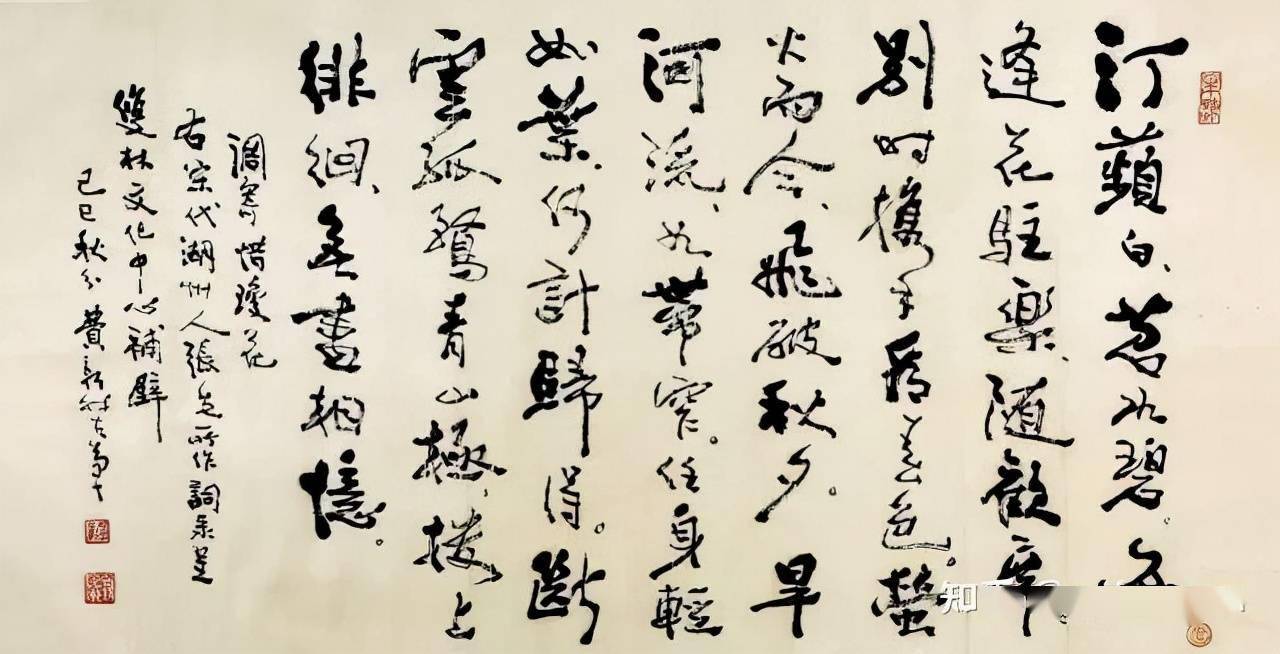 汀蘋白、苕水碧。每
逢花駐樂、随歡
别时攜手看春色。螢
火而今、飛破秋夕。旱
河流、如帶窄。任身輕
如葉、何計歸得。斷
雲孤鶩青山極、樓上
徘徊、無盡相憶。
調寄惜瓊花
右宋代湖州人張先所作詞录呈
雙林文化中心補壁
己巳秋分 費新我左筆
知